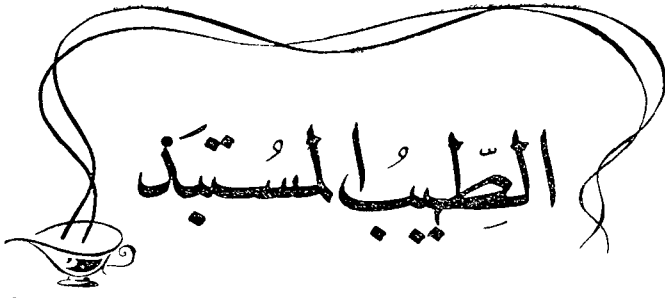 الطِّيبُ المُستبَذ